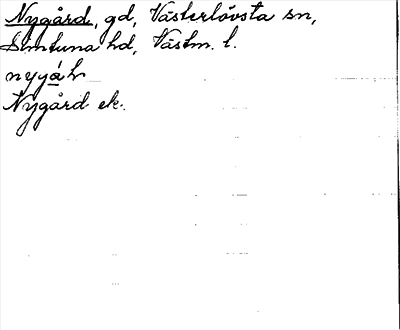 Nygård, gd, Västerlövsta sn,
Simtuna hd, Västm. l.
nygáh
Nygård ek.